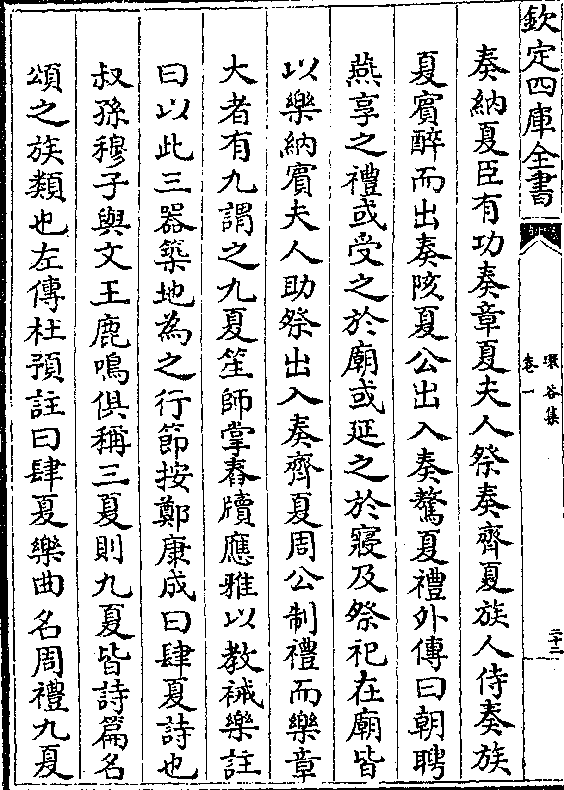 欽定四庫全書
環谷集
卷一
二十二
奏納夏臣有功奏章夏夫人祭奏齊夏族人侍奏族
夏賓醉而出奏陔夏公出入奏驁夏禮外傳曰朝聘
燕享之禮或受之於廟或延之於寢及祭祀在廟皆
以樂納賓夫人助祭出入奏齊夏周公制禮而樂章
大者有九謂之九夏笙師掌舂牘應雅以教祴樂註
曰以此三器築地為之行節按鄭康成曰肆夏詩也
叔孫穆子與文王鹿鳴俱稱三夏則九夏皆詩篇名
頌之族類也左傳杜預註曰肆夏樂曲名周禮九夏